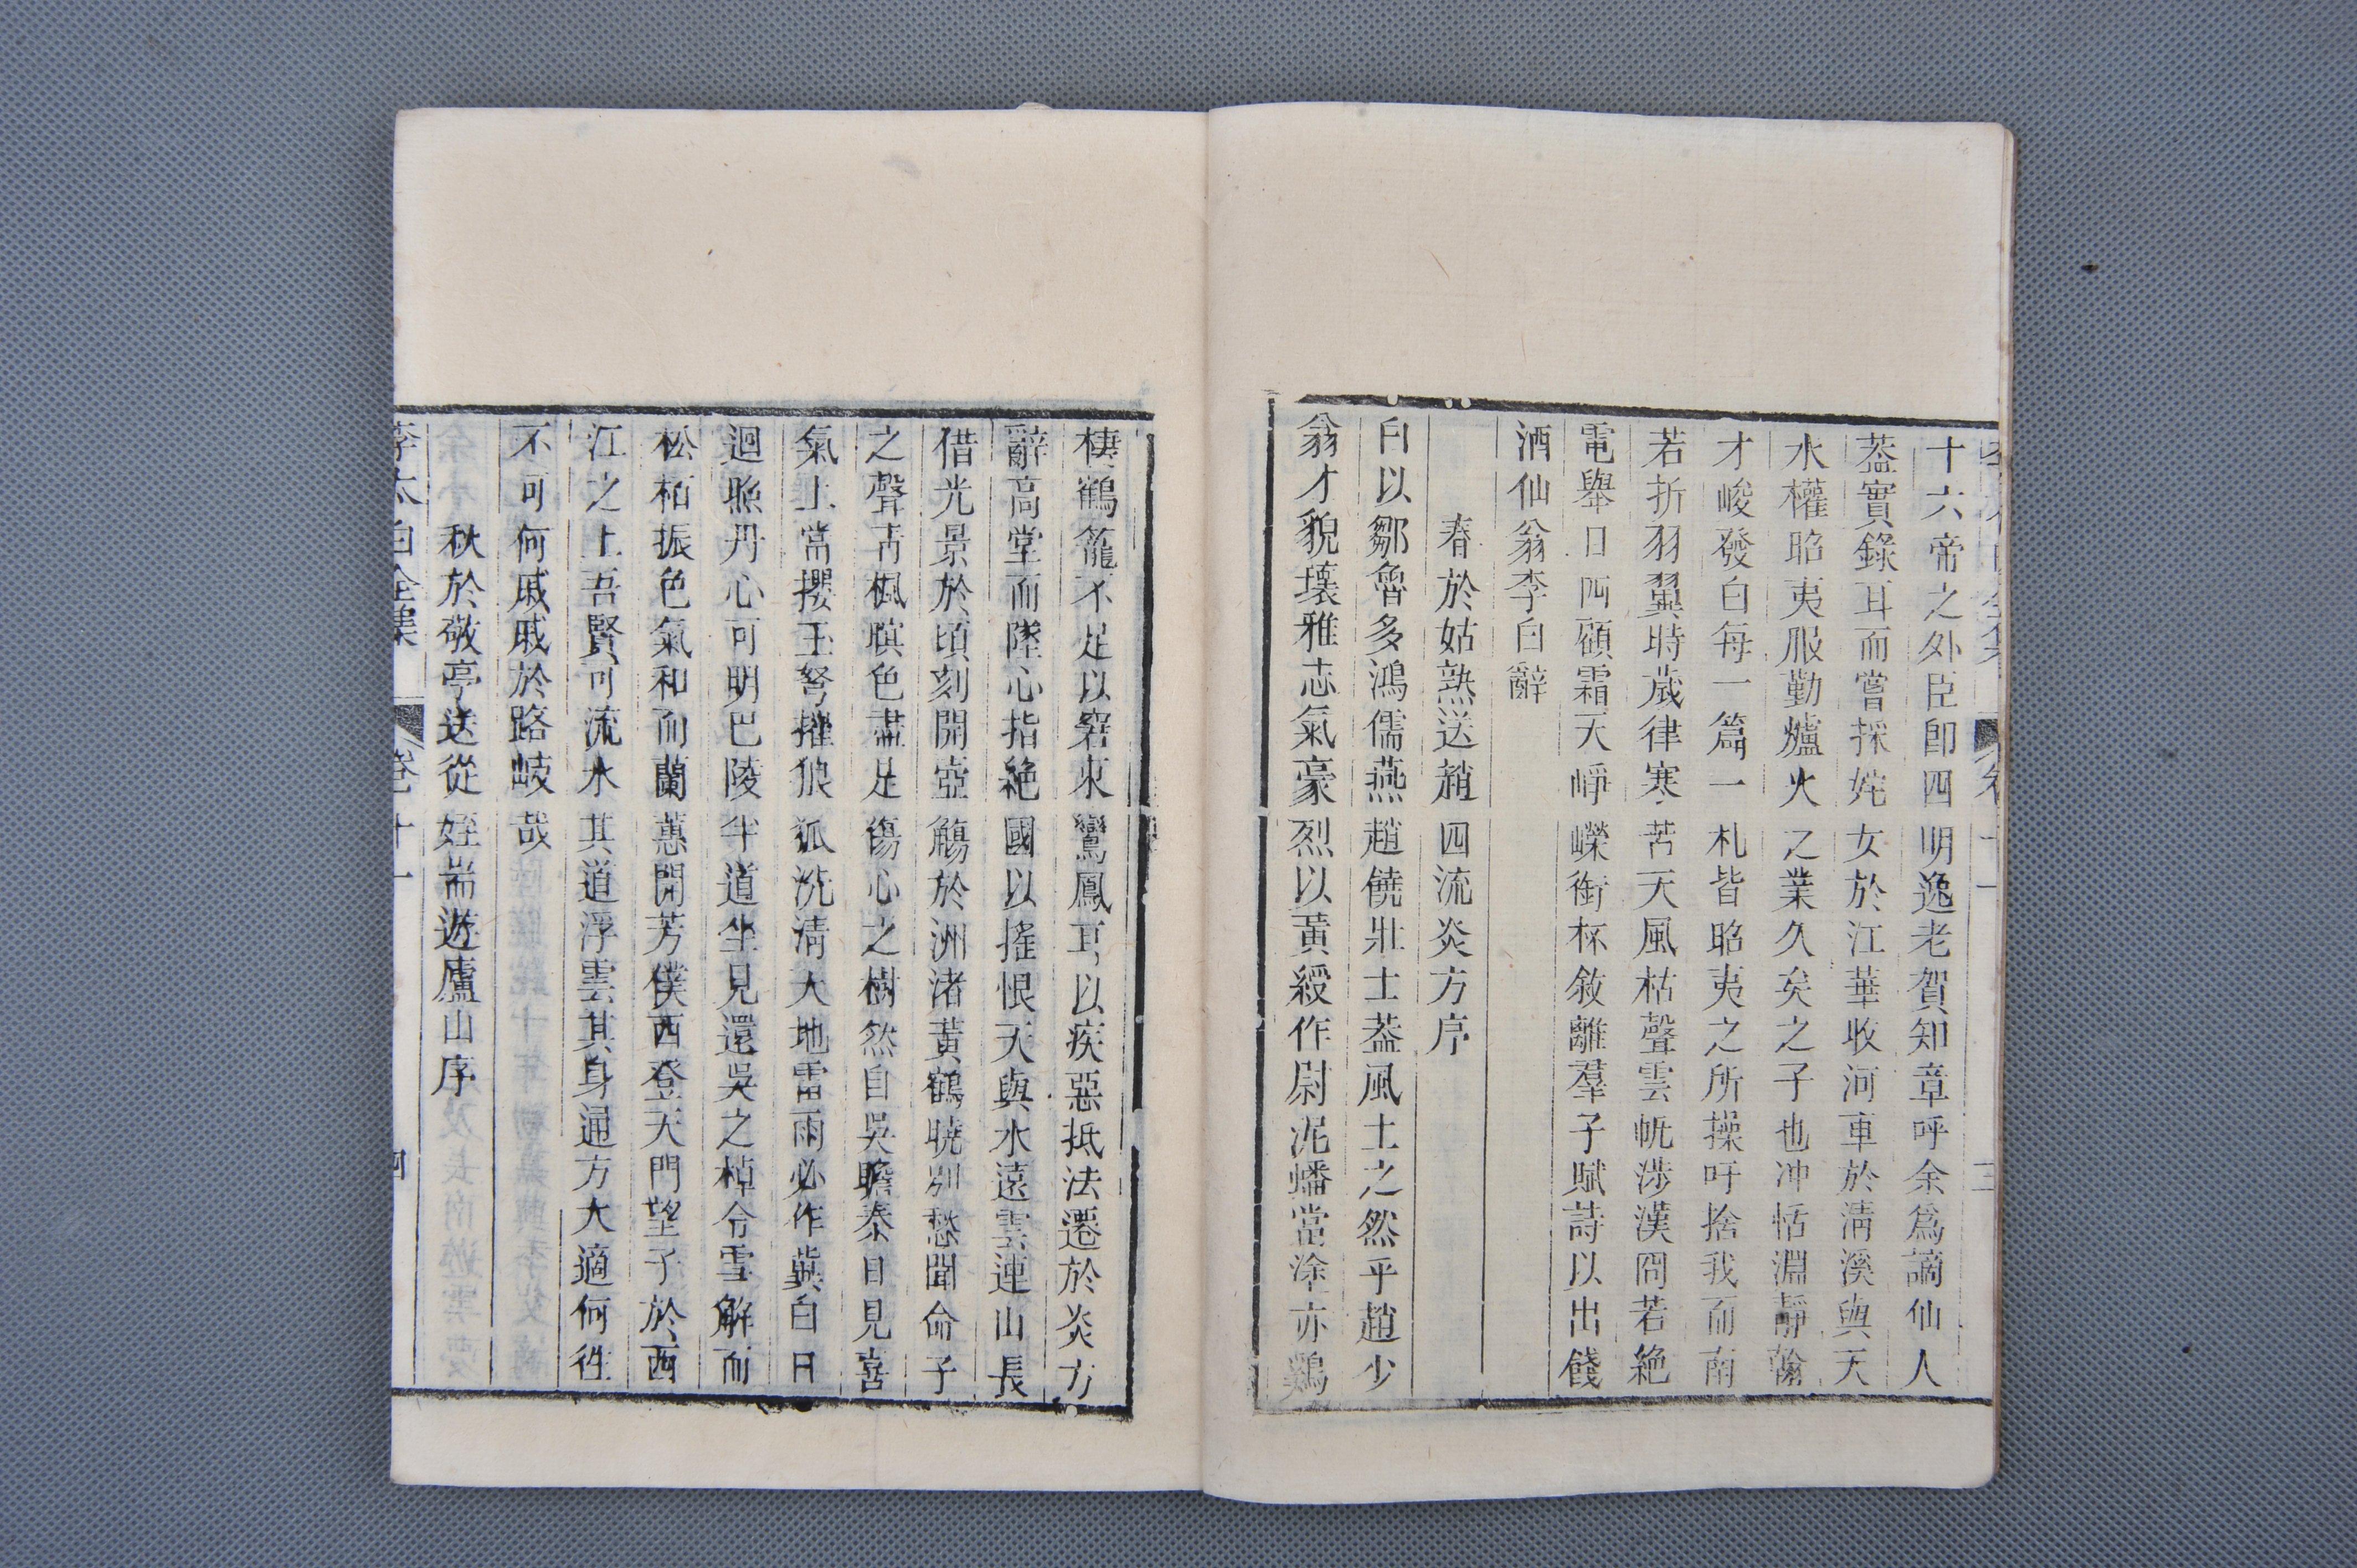 十六帝之外臣卽四明逸老賀知章呼余爲謫仙人
葢實錄耳而嘗採姹女於江華收河車於淸溪與天
水權昭夷服勤爐火之業久矣之子也冲恬淵靜翰
才峻發白每一篇一札皆昭夷之所操吁捨我而南
若折羽翼時歲律寒苦天風枯聲雲帆涉漢冏若絶
電舉目四顧霜天崢嶸銜杯敘離羣子賦詩以出餞
酒仙翁李白辭
春於姑熟送趙四流炎方序
白以鄒魯多鴻儒燕趙饒壯士葢風土之然乎趙少
翁才貌壞雅志氣豪烈以黃綬作尉泥蟠當塗亦鷄
棲鶴籠不足以窘束鸞鳳耳以疾惡抵法遷於炎方
辭高堂而墜心指絶國以搖恨天與水遠雲連山長
借光景於頃刻開壺觴於洲渚黃鶴曉別愁聞命子
之聲靑楓暝色盡是傷心之樹然自吳瞻秦日見喜
氣上當攫玉弩摧狼狐洗淸天地雷雨必作冀白日
迴照丹心可明巴陵半道坐見還吳之棹令雪解而
松柏振色氣和而蘭蕙開芳僕西登天門望子於西
江之上吾賢可流水其道浮雲其身通方大適何徃
不可何戚戚於路岐哉
秋於敬亭送從姪耑遊廬山序
李太白全集 卷十一 四